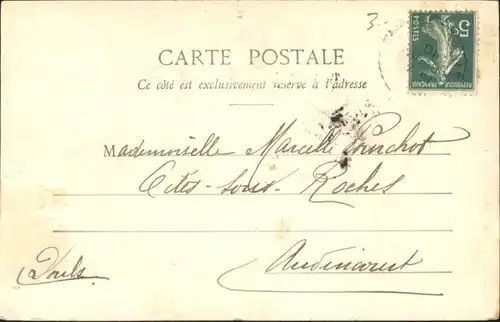 3.
5c
POSTES
REPUBLIQUE FRANÇAISE
CARTE POSTALE
Ce côté est exclusivement réservé à l'adresse
Mademoiselle Marcelle Pourchot
Cités-sous-Roches
Audincourt
Doubs